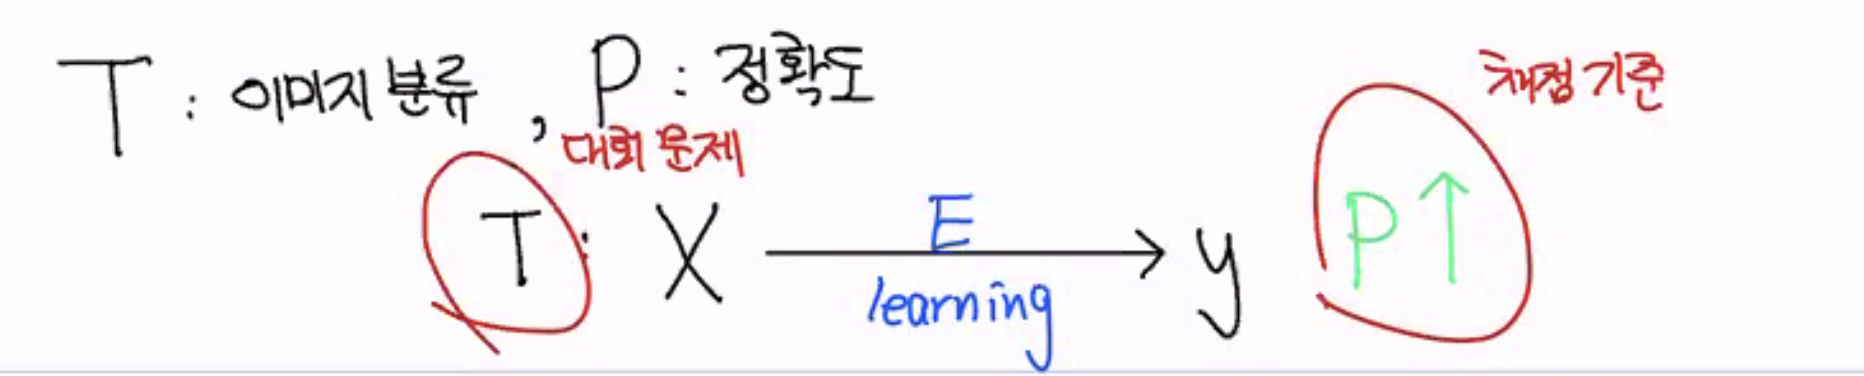 T : 이미지 분류 , P : 정확도
대회 문제
채점 기준
T : X E y P↑
learning